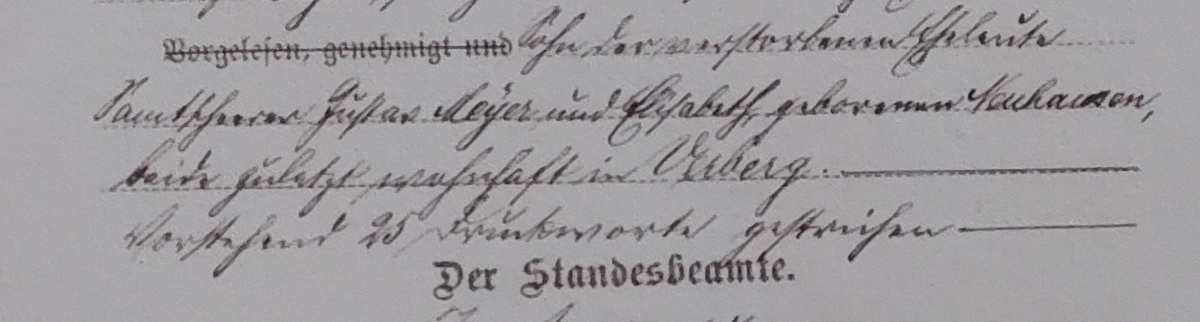 Vorgelesen, genehmigt und Sohn der verstorbenen Eheleute
Samtscherer Gustav Meyer und Elisabeth geborenen Neuhausen,
beide zuletzt wohnhaft in Verberg.
Vorstehend 25 Druckworte gestrichen
Der Standesbeamte.